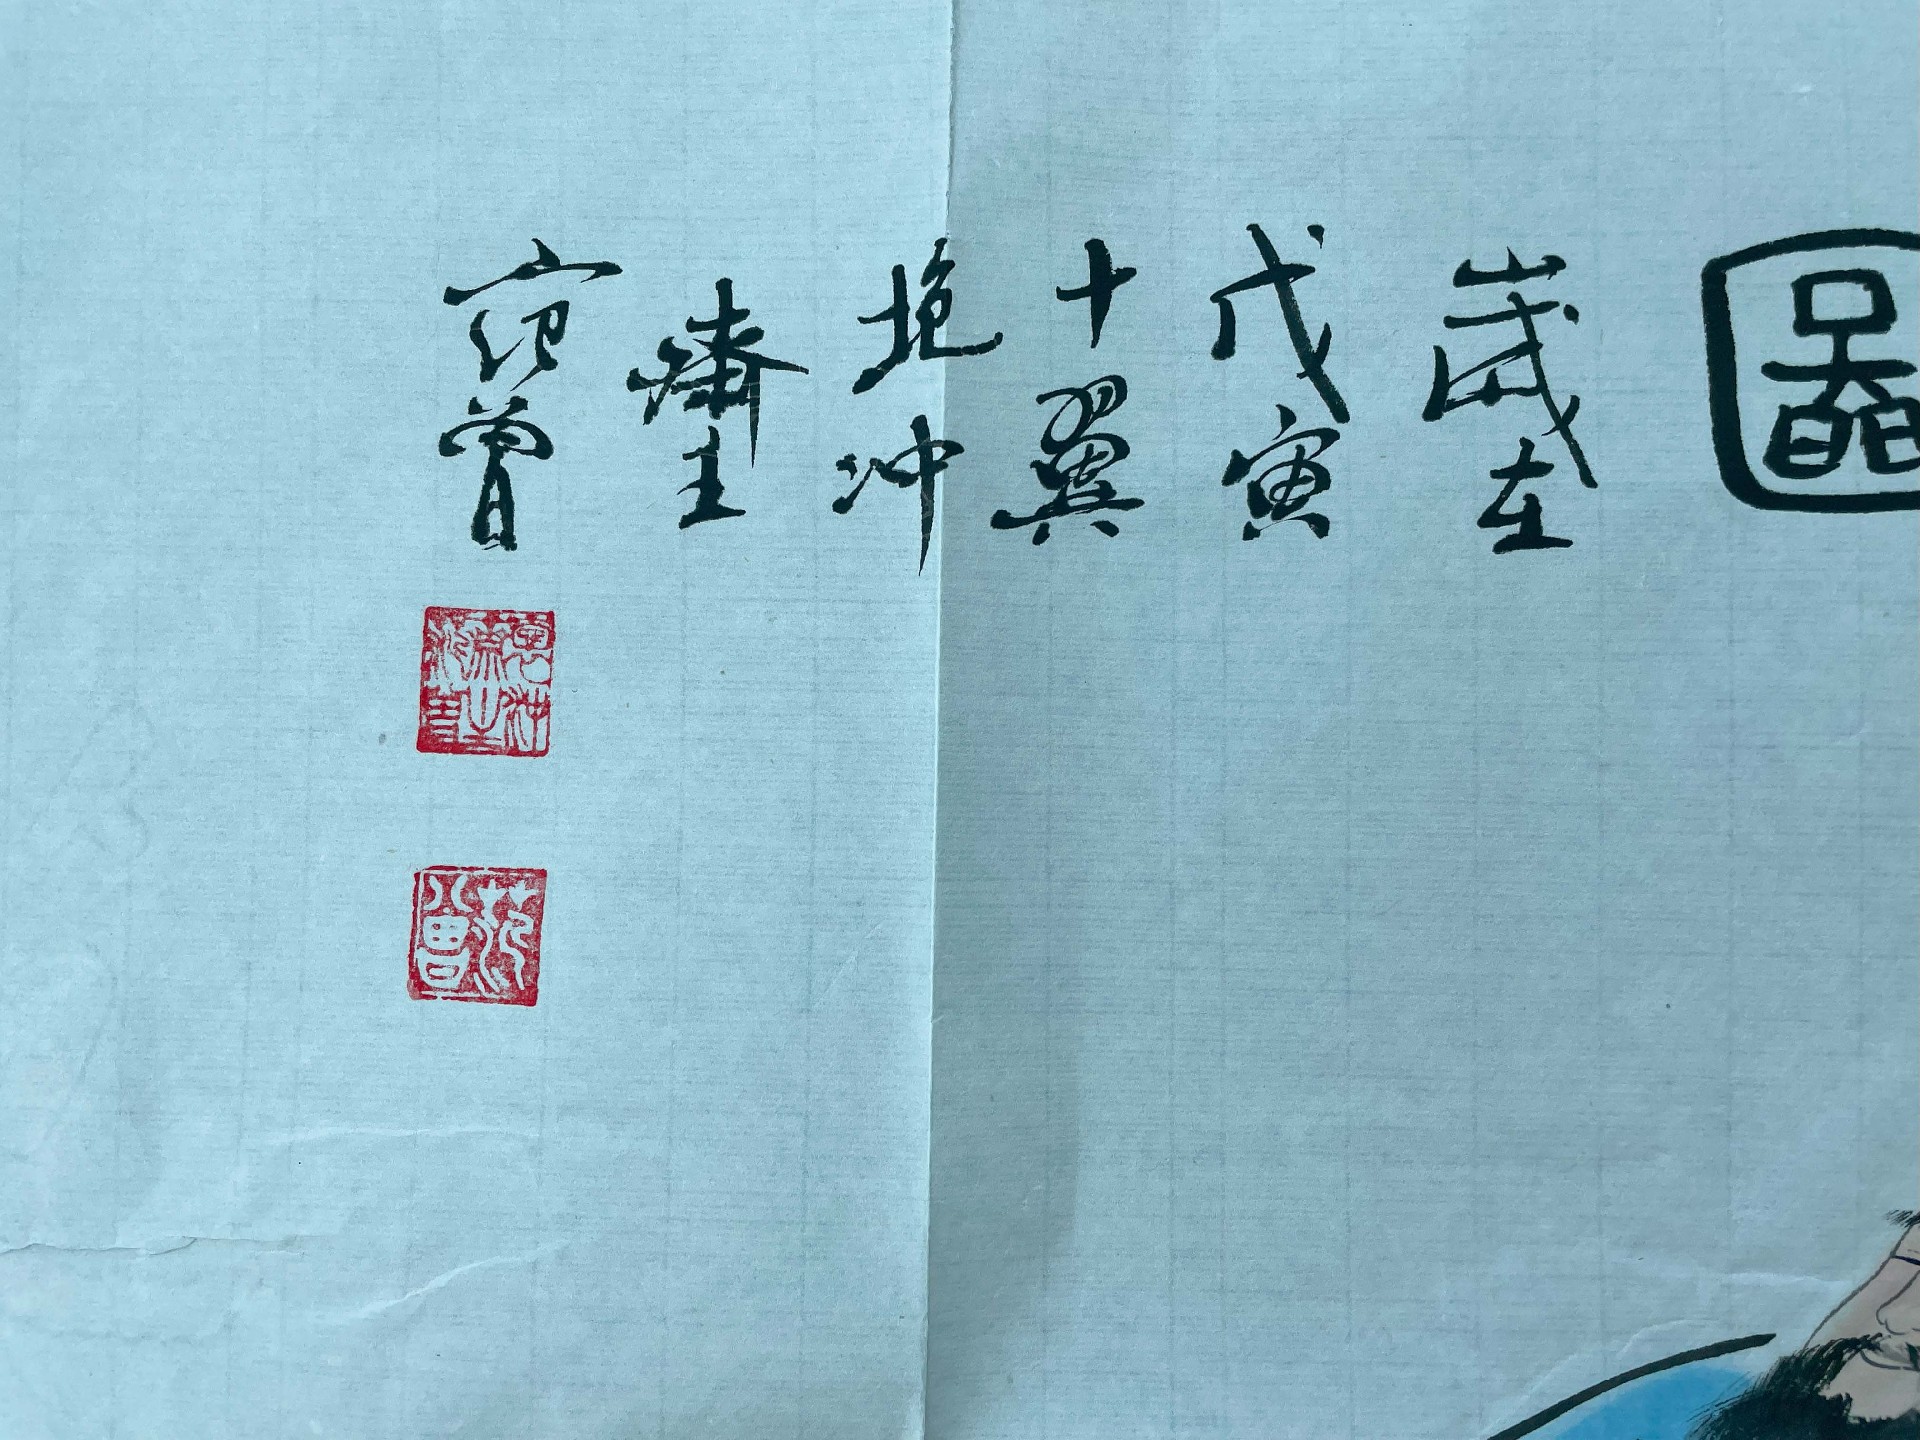 圖
歲在
戊寅
十翼
抱冲
齋主
范曾
范曾